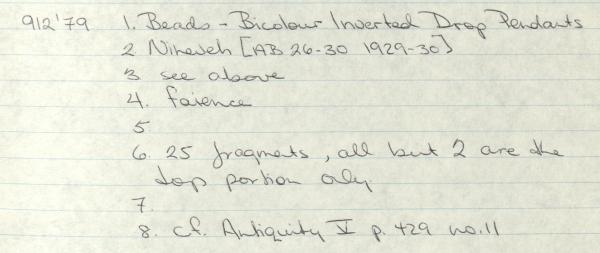 912'79 1. Beads - Bicolour Inverted Drop Pendants
2 Nineveh [AB 26-30 1929-30]
3 see above
4. faience
5
6. 25 fragments, all but 2 are the
top portion only.
7.
8. cf. Antiquity V p. 429 no. 11